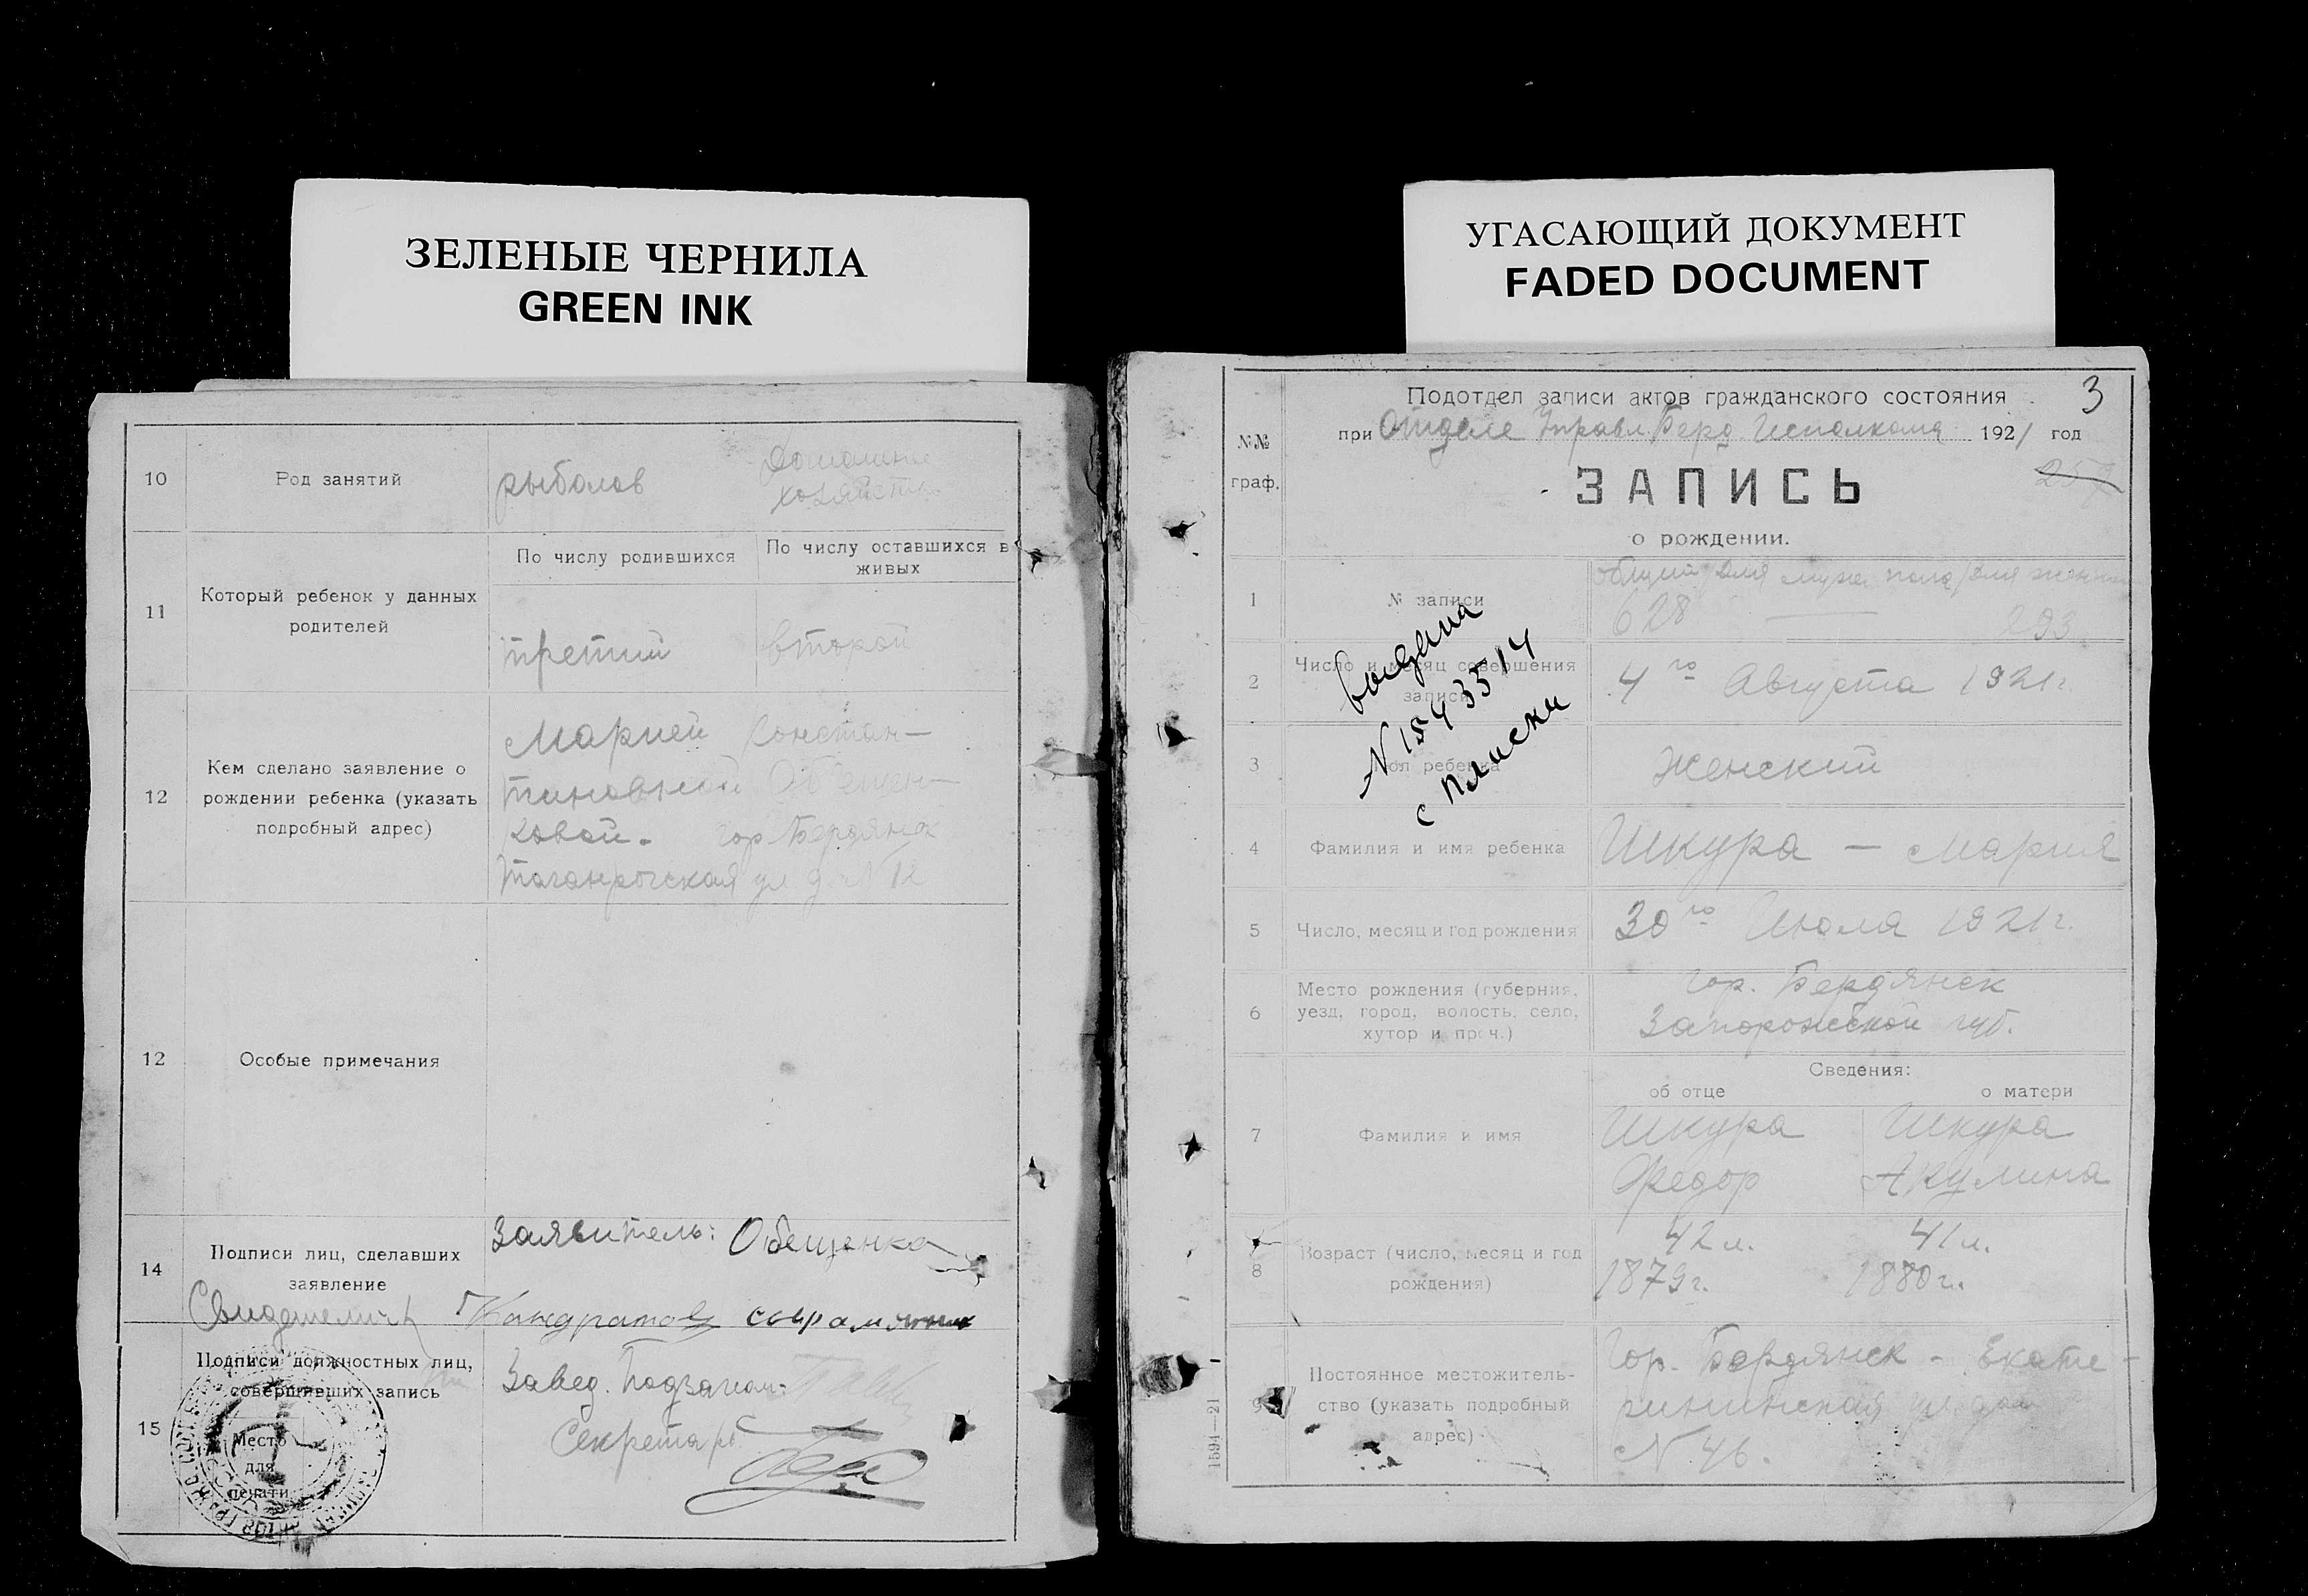 ЗЕЛЕНЫЕ ЧЕРНИЛА
GREEN INK
10
Род занятий
рыболов
Домашнее
хозяйство
11
Который ребенок у данных
родителей
По числу родившихся
По числу оставшихся в
живых
третий
второй
12
Кем сделано заявление о
рождении ребенка (указать
подробный адрес)
Марией Констан-
тиновной Обещен-
ковой. гор Бердянск
Таганрогская ул д. № 12
12
Особые примечания
14
Подписи лиц, сделавших
заявление
Заявитель: Обещенко
Свидетели
15
Подписи должностных лиц,
совершивших запись
Место
для
печати
Завед. Подзагсом:
Секретарь
УГАСАЮЩИЙ ДОКУМЕНТ
FADED DOCUMENT
3
№№
граф.
Подотдел записи актов гражданского состояния
при Отделе Управл Берд. Исполкома 1921 год
259
ЗАПИСЬ
о рождении.
1
№ записи
общий для муж. пола для женск
628 — 293
2
Число и месяц совершения
записи
4го Августа 1921г.
3
Пол ребенка
Женский
выдана
N 1543514
с
4
Фамилия и имя ребенка
Шкура — Мария
5
Число, месяц и год рождения
30го Июля 1921г.
6
Место рождения (губерния,
уезд, город, волость, село,
хутор и проч.)
гор. Бердянск
Запорожской губ.
Сведения:
об отце
о матери
7
Фамилия и имя
Шкура
Федор
Шкура
Акулина
8
Возраст (число, месяц и год
рождения)
42 л.
1879г.
41 л.
1880г.
9
Постоянное местожитель-
ство (указать подробный
адрес)
Гор. Бердянск - Екате-
рининская ул дом
№ 46.
1594—21